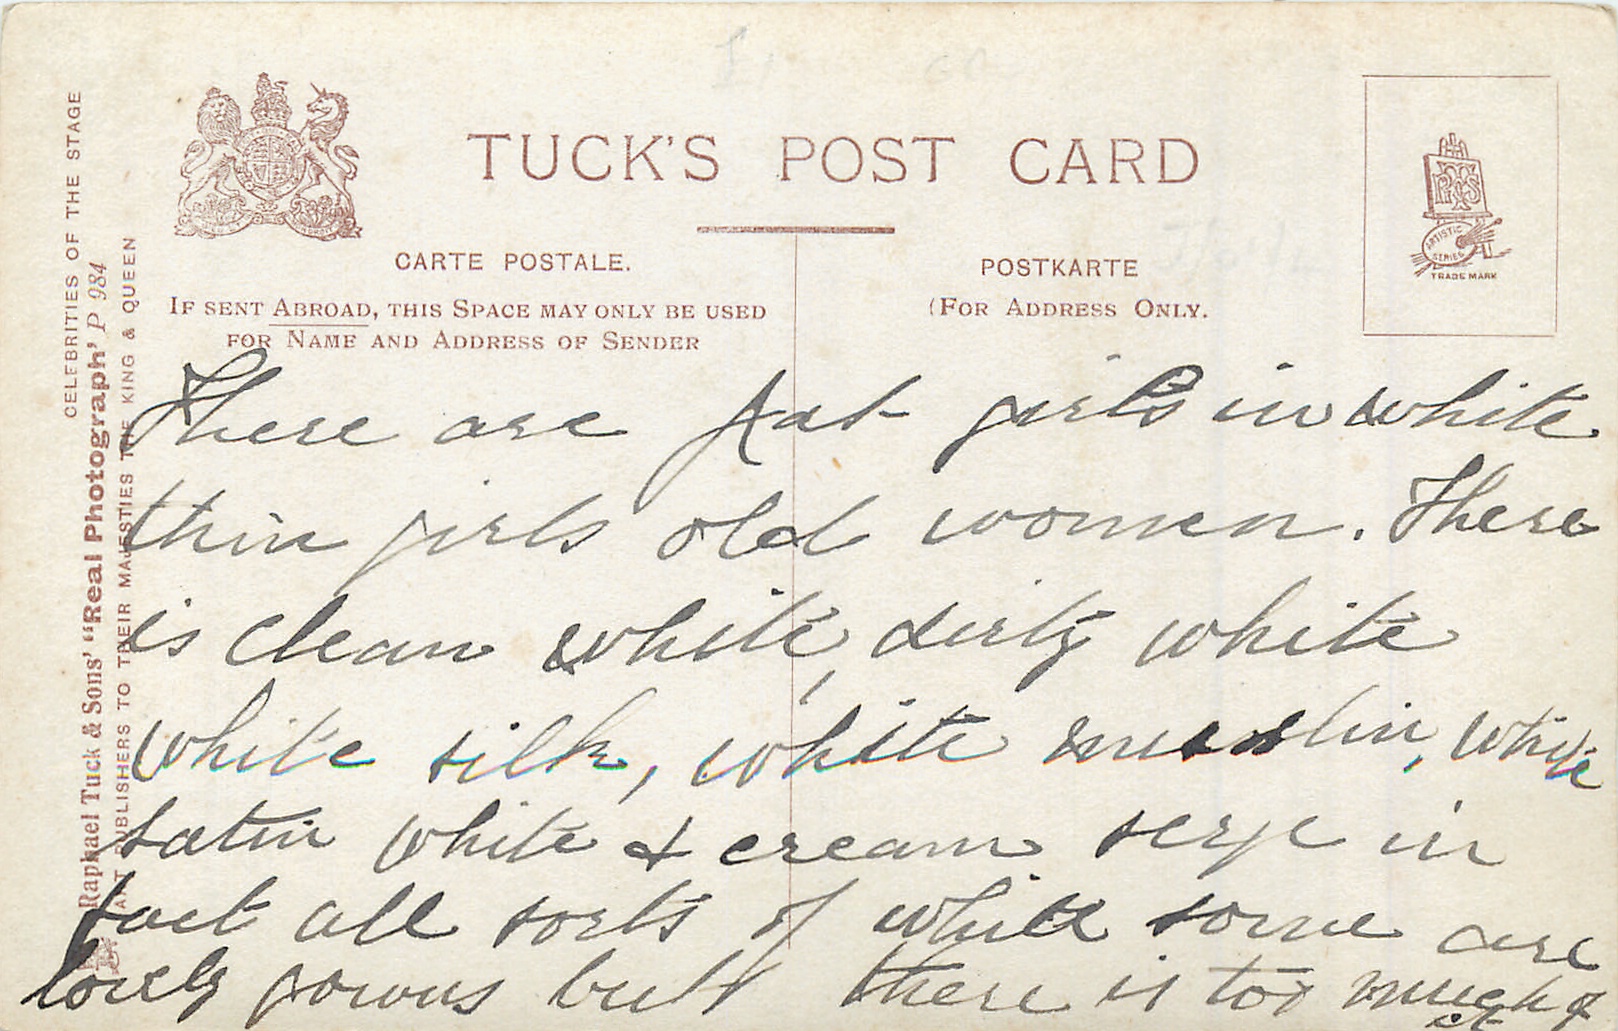 TUCK'S POST CARD
CARTE POSTALE.
IF SENT ABROAD, THIS SPACE MAY ONLY BE USED
FOR NAME AND ADDRESS OF SENDER
POSTKARTE
(FOR ADDRESS ONLY.
RTS
ARTISTIC
SERIES
TRADE MARK
CELEBRITIES OF THE STAGE
Raphael Tuck & Sons' "Real Photograph" P 984
ART PUBLISHERS TO THEIR MAJESTIES THE KING & QUEEN
There are fat girls in white
thin girls old women. There
is clean white, dirty white
white silk, white muslin, white
satin white & cream serge in
fact all sorts of white some are
lovely gowns but there is too much of
it